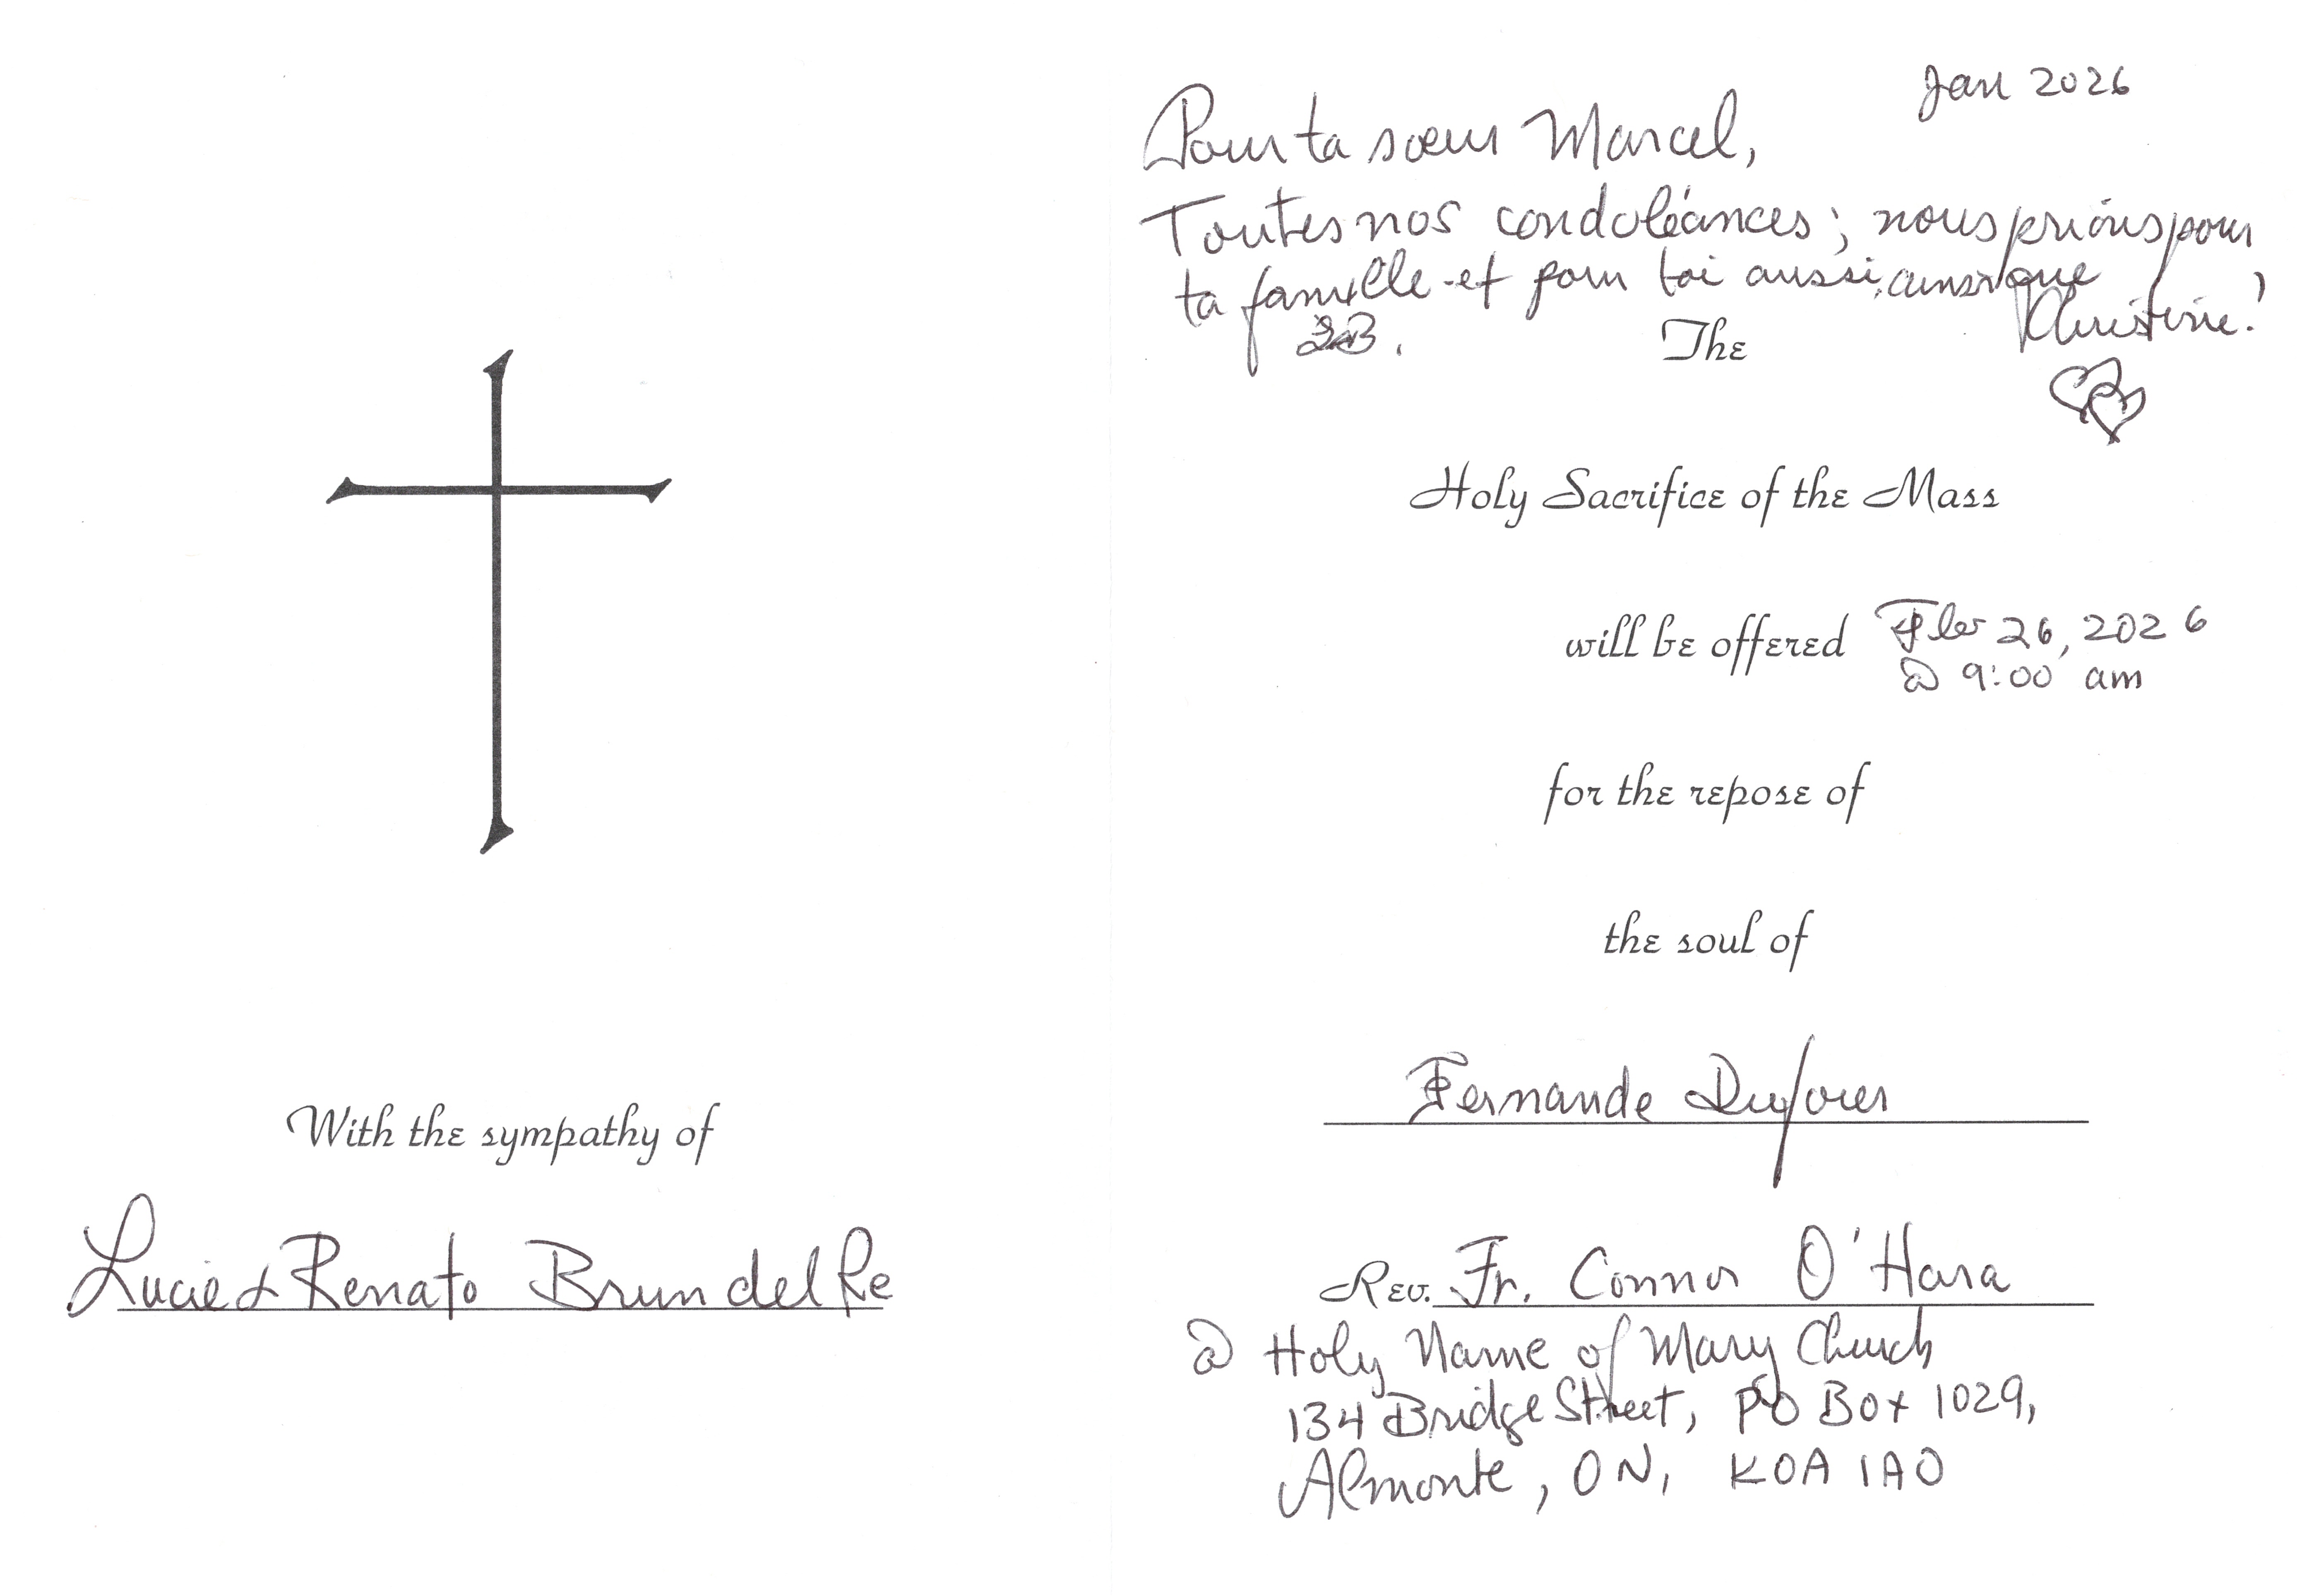 With the sympathy of
Lucie & Renato Brun del Re
Jan 2026
Pour ta soeur Marcel,
Toutes nos condoléances; nous prions pour
ta famille et pour toi aussi, ainsi que
Christine!
The
Holy Sacrifice of the Mass
will be offered Feb 26, 2026
@ 9:00 am
for the repose of
the soul of
Fernande Dufour
Rev. Fr. Connor O'Hara
@ Holy Name of Mary Church
134 Bridge Street, PO Box 1029,
Almonte, ON, K0A 1A0